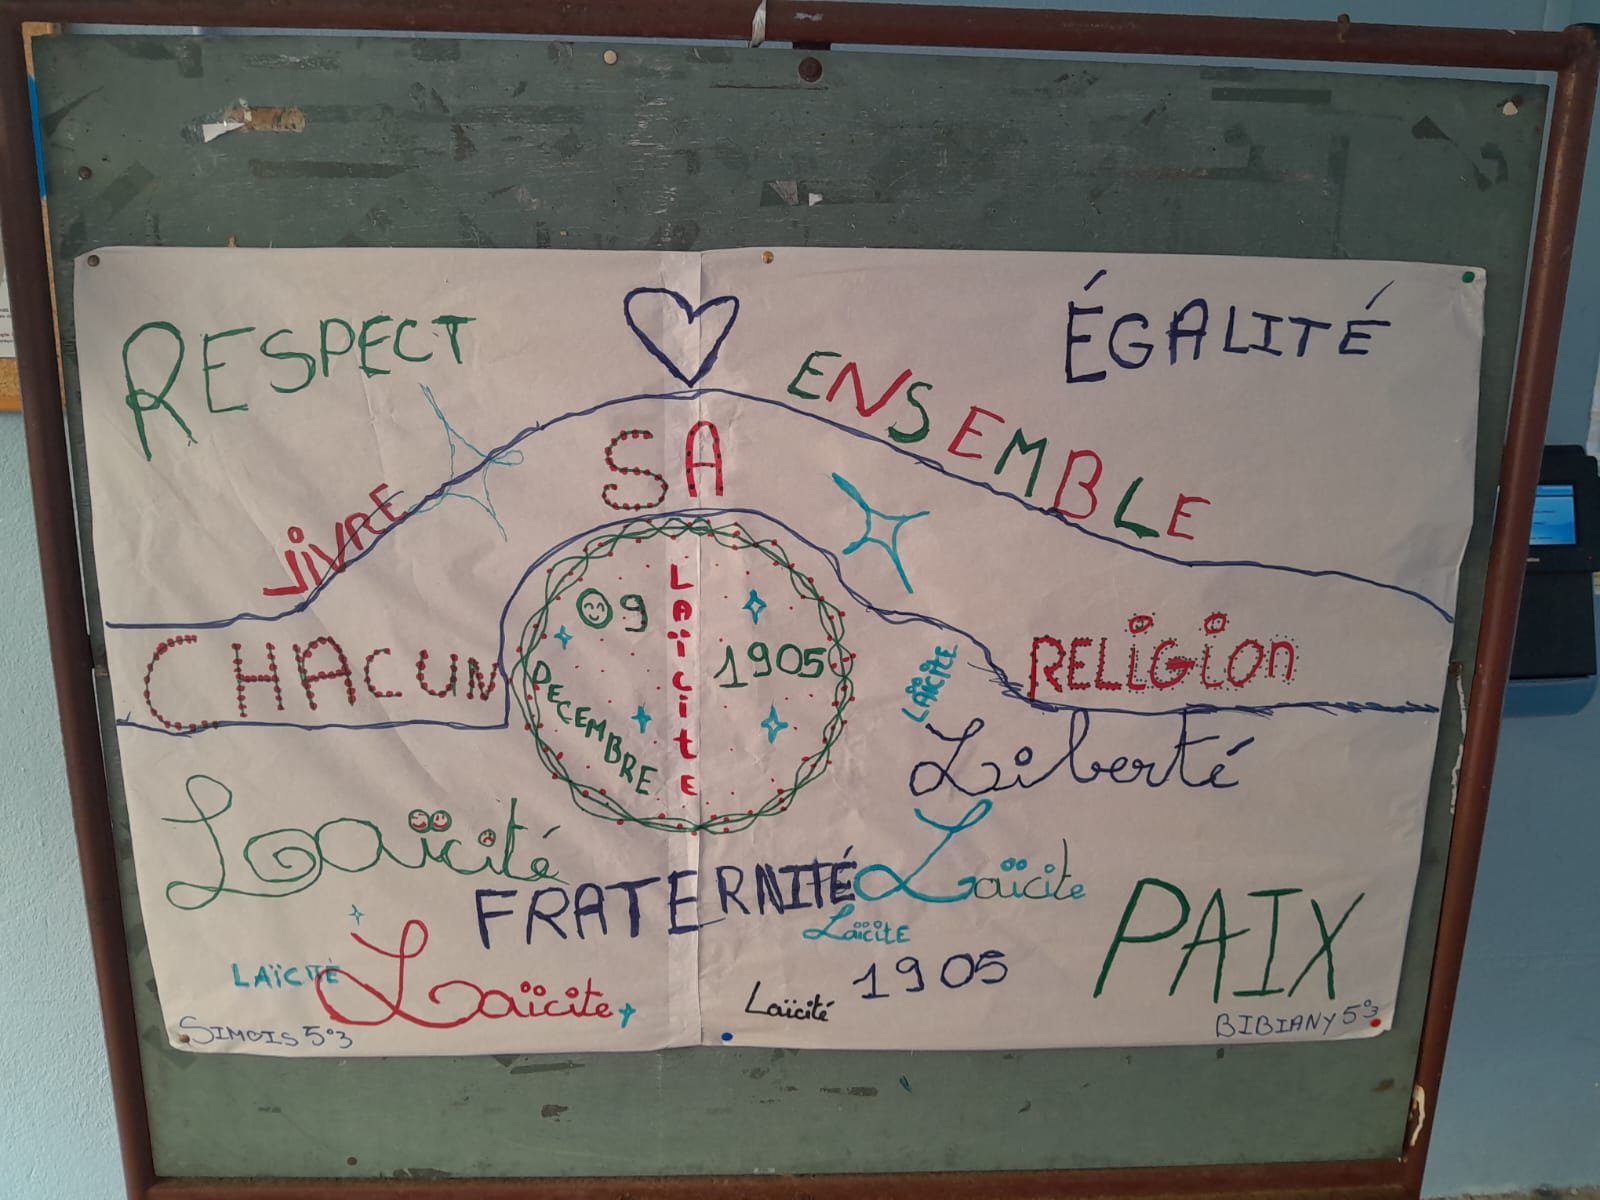 RESPECT
ÉGALITÉ
VIVRE ENSEMBLE
CHACUN SA RELIGION
09
DECEMBRE
LAÏCITE
1905
LAÏCITE
Liberté
Laïcité
FRATERNITÉ
Laïcite
LaïcitE
PAIX
LAÏCITÉ
Laïcite
1905
Laïcité
SIMOIS 5°3
BIBIANY 5°3